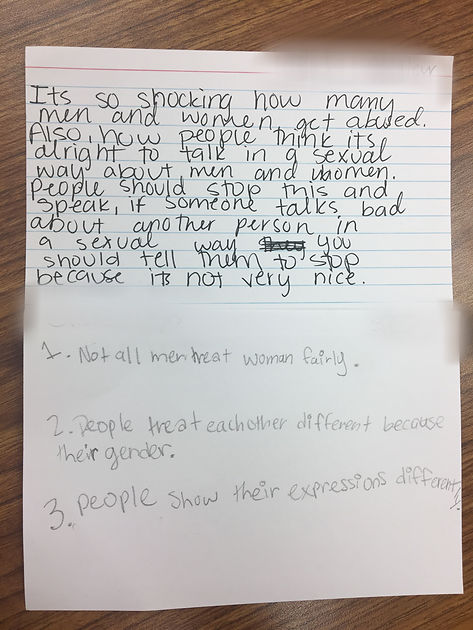 Its so shocking how many
men and women get abused.
Also, how people think its
alright to talk in a sexual
way about men and women.
People should stop this and
speak, if someone talks bad
about another person in
a sexual way you
should tell them to stop
because its not very nice.
1. Not all men treat woman fairly.
2. People treat eachother different because
their gender.
3. people show their expressions differently.